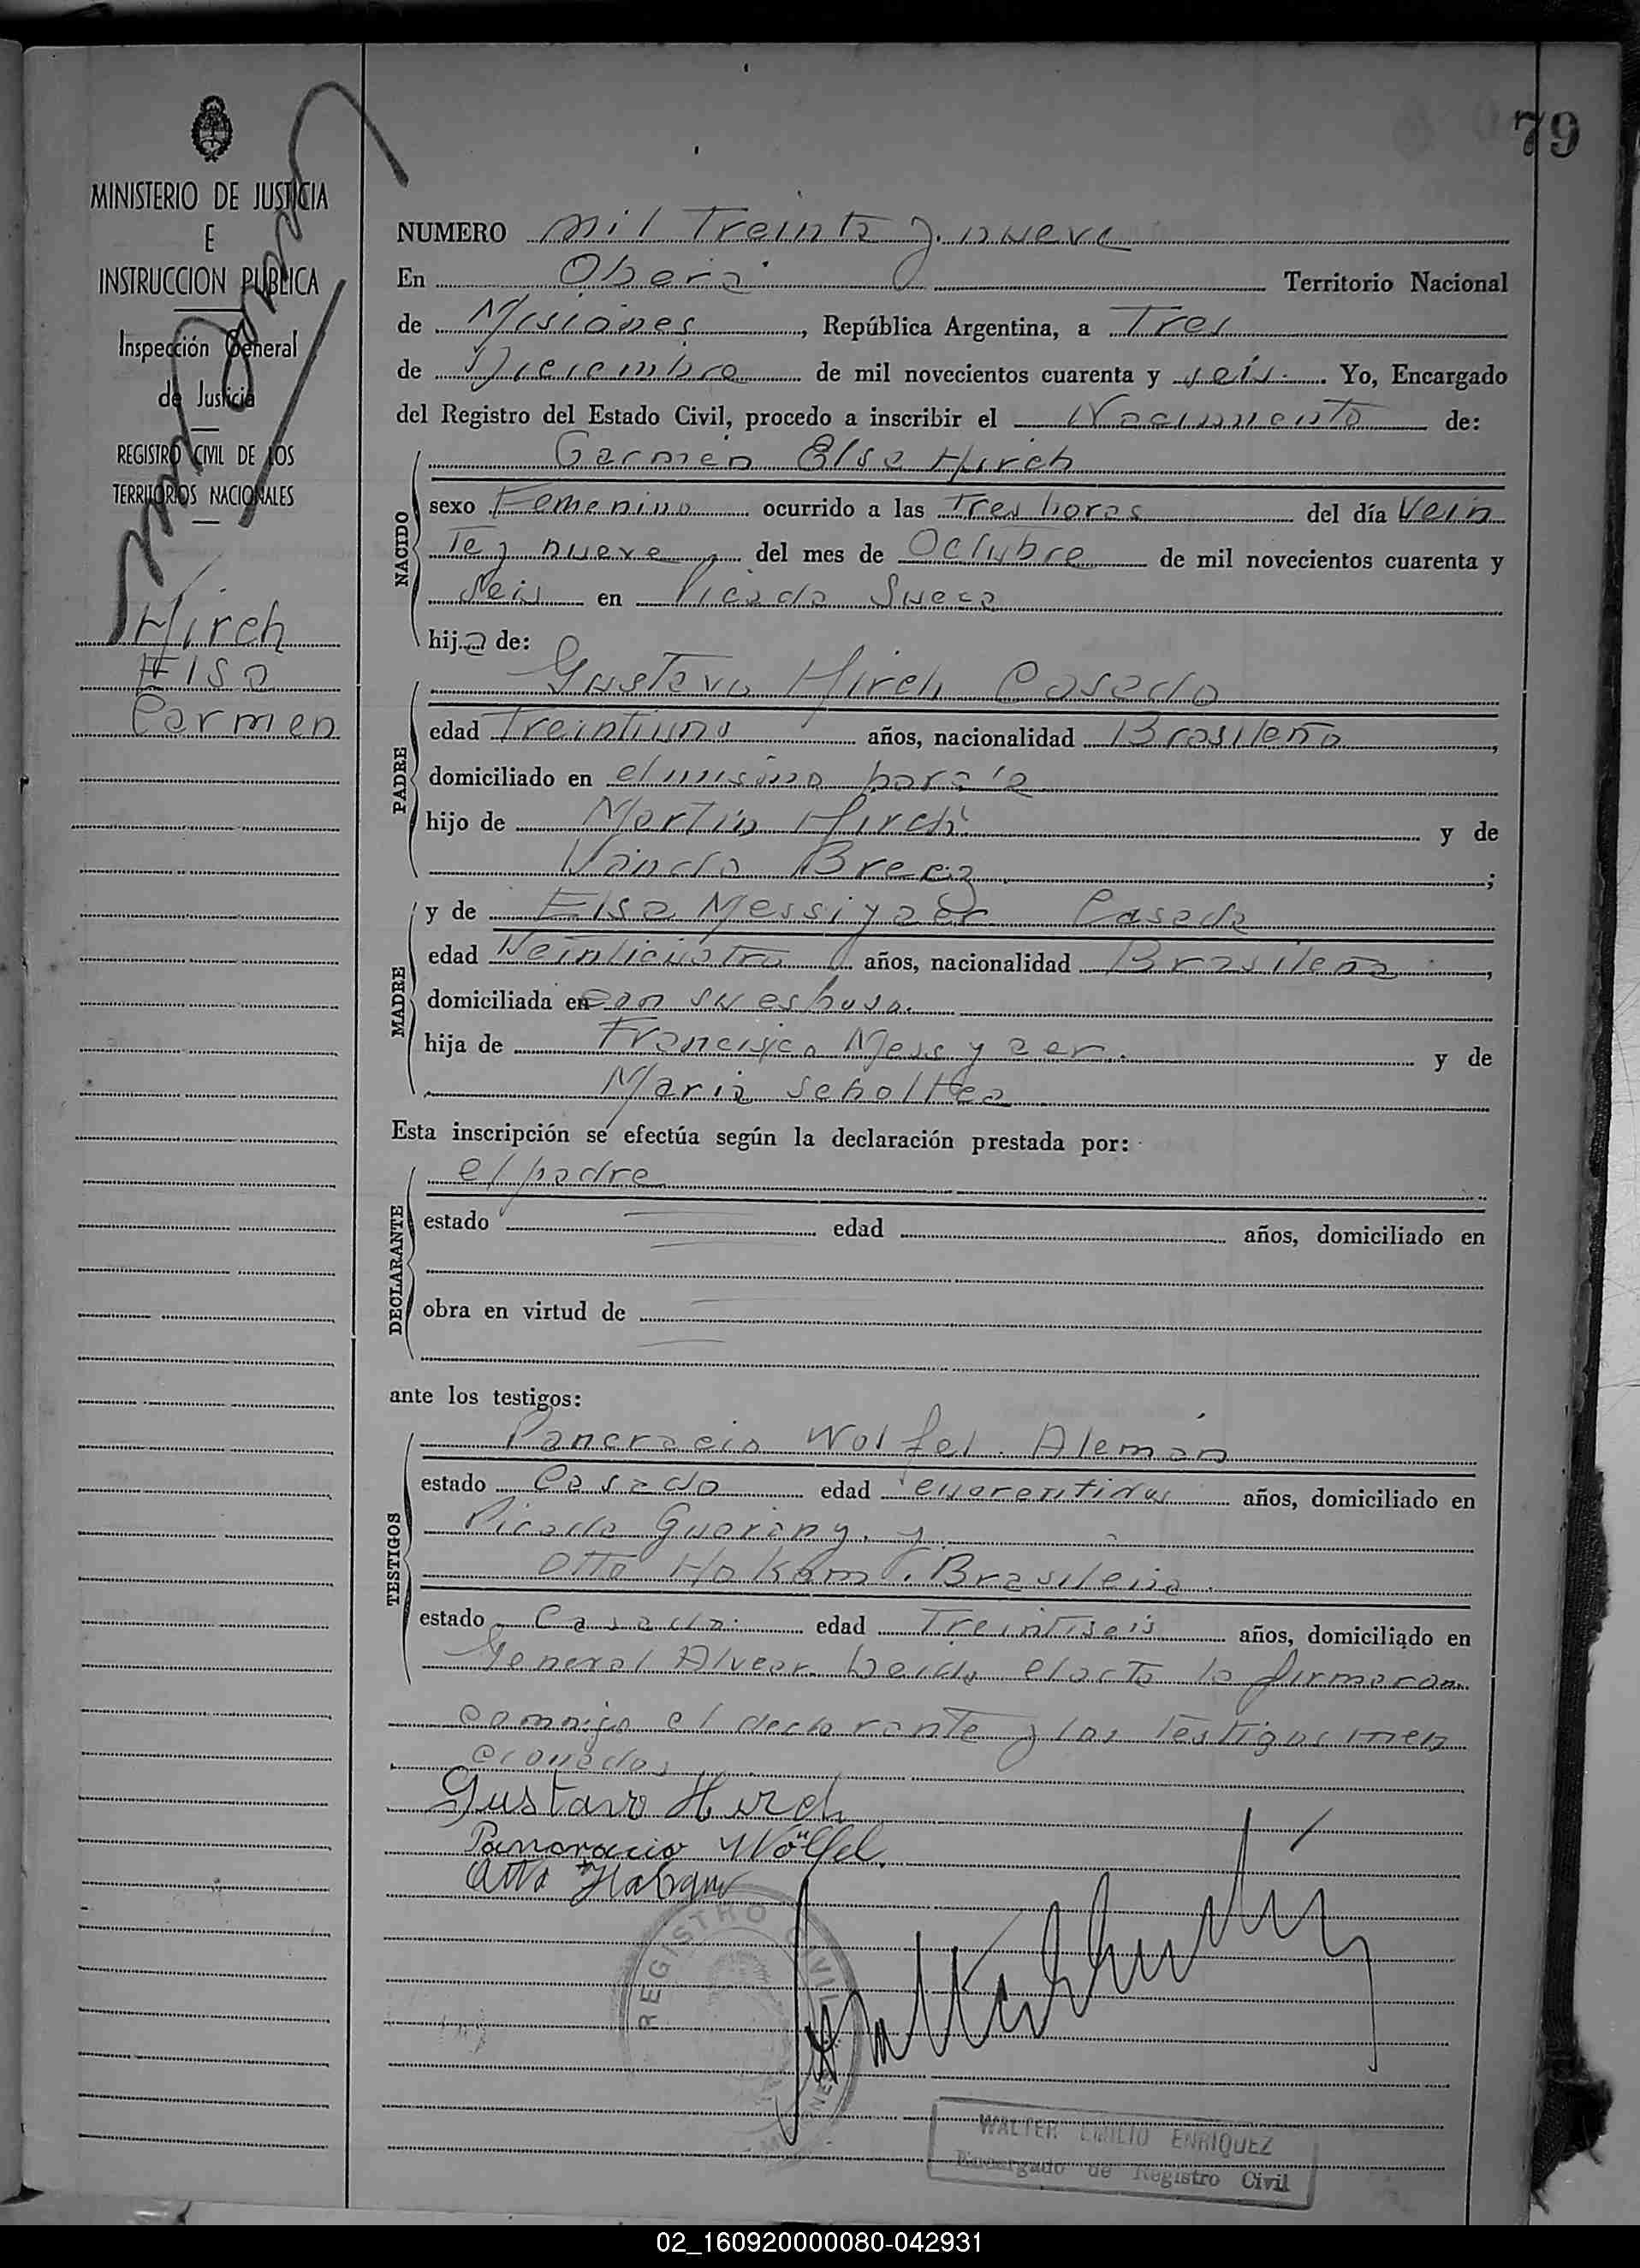 79
MINISTERIO DE JUSTICIA
E
INSTRUCCION PUBLICA
Inspección General
de Justicia
REGISTRO CIVIL DE LOS
TERRITORIOS NACIONALES
Hirch
Elsa
Carmen
NUMERO mil Treinta y nueve
En Oberá Territorio Nacional
de Misiones, República Argentina, a Tres
de Diciembre de mil novecientos cuarenta y seis. Yo, Encargado
del Registro del Estado Civil, procedo a inscribir el Nacimiento de:
NACIDO
Carmen Elsa Hirch
sexo Femenino ocurrido a las Tres horas del día Vein
te y nueve del mes de Octubre de mil novecientos cuarenta y
seis en Picada Sueca
hija de:
PADRE
Gustavo Hirch Casado
edad Treintiuno años, nacionalidad Brasileño,
domiciliado en el mismo paraje
hijo de Martin Hirch y de
Vanda;
MADRE
y de Elsa Casada
edad Veinticuatro años, nacionalidad Brasileña,
domiciliada en con su esposo.
hija de Francisco y de
Maria
Esta inscripción se efectúa según la declaración prestada por:
DECLARANTE
el padre
estado edad años, domiciliado en
obra en virtud de
ante los testigos:
TESTIGOS
Pancracio Wolfel. Alemán
estado Casado edad años, domiciliado en
Picada Guarany. y
Otto Brasileño.
estado Casado. edad Treintiseis años, domiciliado en
General Alvear. Leida el acta la firmaron
conmigo el declarante y los Testigos men
cionados
Gustavo Hirch
Pancracio Wölfel.
Otto
REGISTRO CIVIL
WALTER EMILIO ENRIQUEZ
Encargado de Registro Civil
02_160920000080-042931